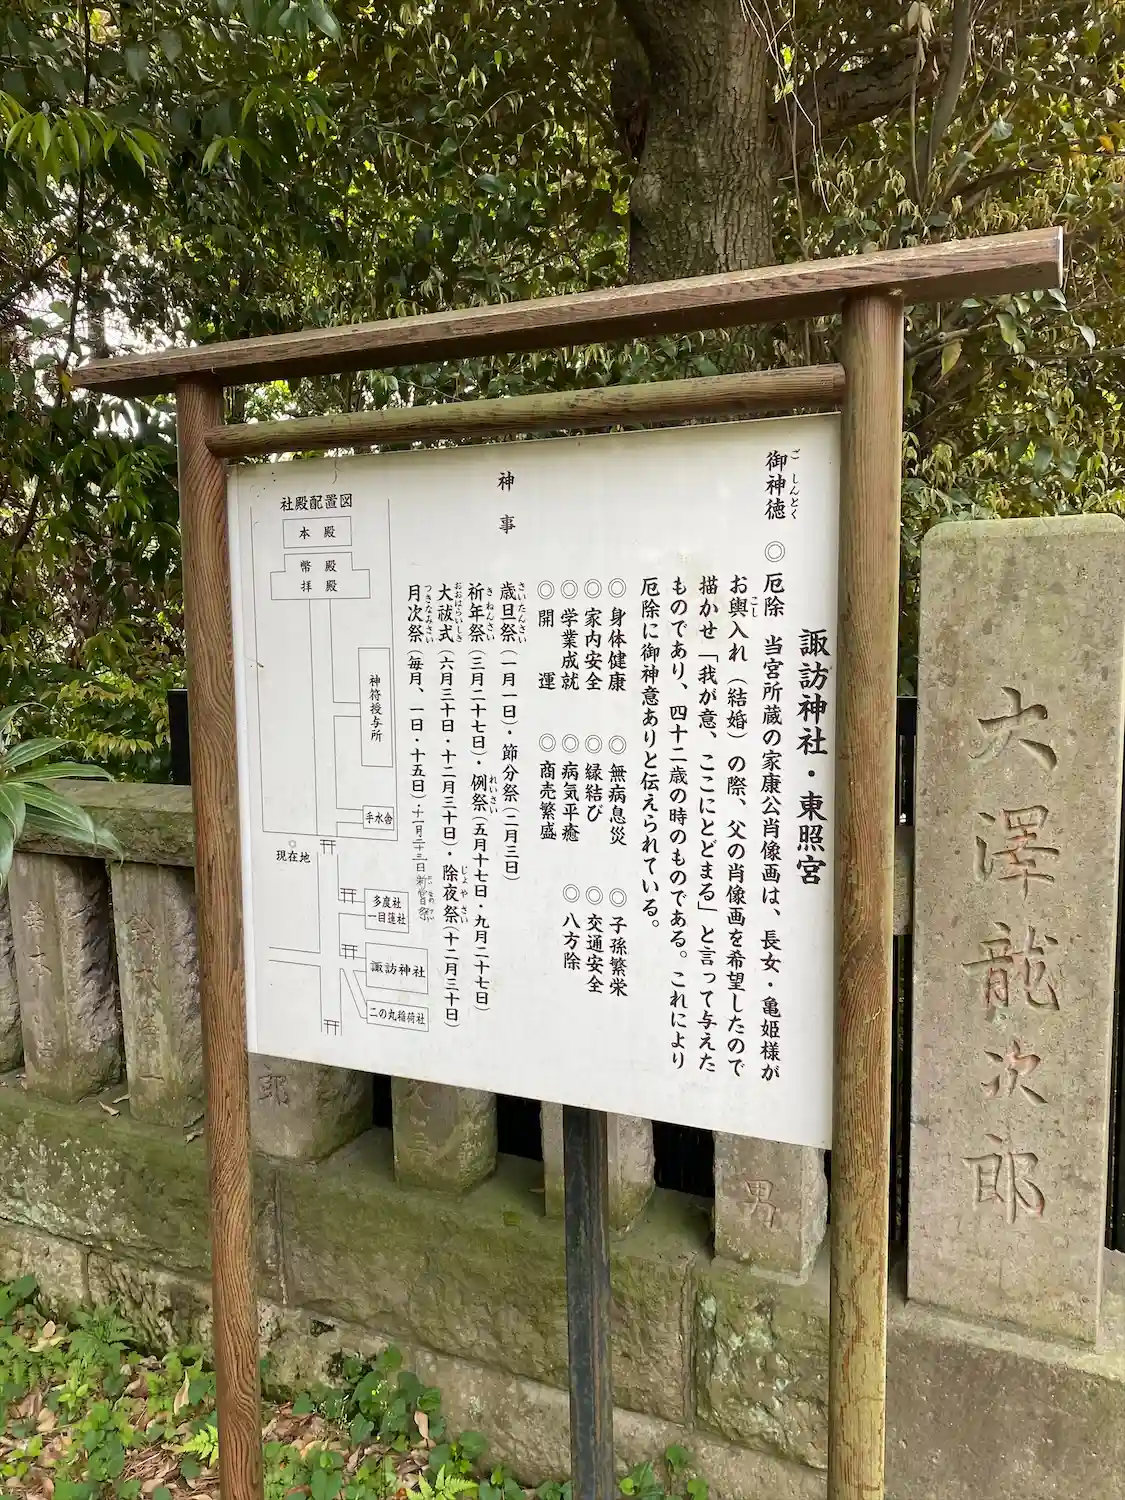 諏訪神社・東照宮
御神徳
ごしんとく
◎厄除 当宮所蔵の家康公肖像画は、長女・亀姫様が
お輿入れ(結婚)の際、父の肖像画を希望したので
こし
描かせ「我が意、ここにとどまる」と言って与えた
ものであり、四十二歳の時のものである。これにより
厄除に御神意ありと伝えられている。
◎身体健康 ◎無病息災 ◎子孫繁栄
◎家内安全 ◎縁結び ◎交通安全
◎学業成就 ◎病気平癒 ◎八方除
◎開運 ◎商売繁盛
神事
歳旦祭(一月一日)・節分祭(二月三日)
さいたんさい
祈年祭(三月二十七日)・例祭(五月十七日・九月二十七日)
きねんさい れいさい
大祓式(六月三十日・十二月三十日)・除夜祭(十二月三十日)
おおはらいしき じょやさい
月次祭(毎月、一日・十五日)・十一月二十三日新嘗祭
つきなみさい
社殿配置図
本殿
幣殿
拝殿
神符授与所
手水舎
現在地
多度社
一目蓮社
諏訪神社
二の丸稲荷社
大澤龍次郎
郎
男